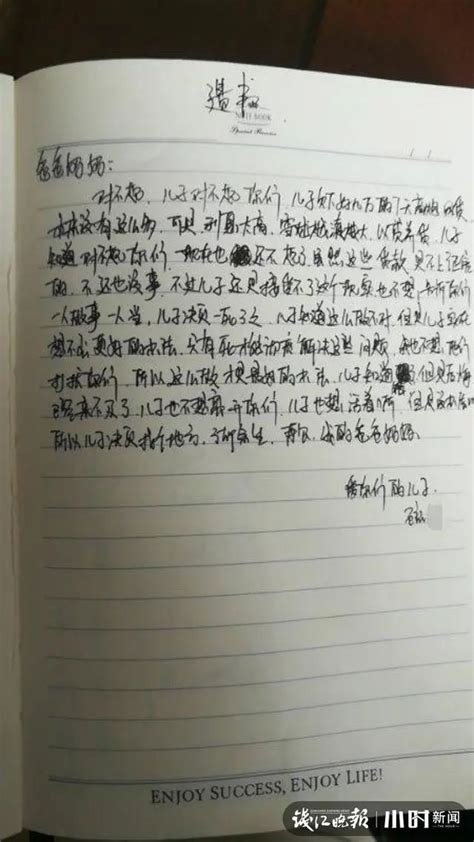 遗书
NOTE BOOK
Special Reserve
爸爸妈妈：
对不起，儿子对不起你们，儿子欠下好几万的
本来没有这么多，可是利息太高，窟窿越滚越大，以贷养贷，儿子
知道对不起你们，现在也还不起了虽然这些贷款是不上征信
的，不还也没事，不过儿子还是接受不了这个现实也不想
一人做事一人当，儿子决定一死了之，儿子知道这么做不对，但是儿子实在
想不出更好的办法，只有死才能彻底解决这些问题，我也不想他们
打扰你们，所以这么做才是最好的办法，儿子知道 但是
儿子也不想离开你们，儿子也想活着，
所以儿子决定找个地方，了断余生，再见，我的爸爸妈妈
爱你们的儿子
ENJOY SUCCESS, ENJOY LIFE!
钱江晚报 小时新闻